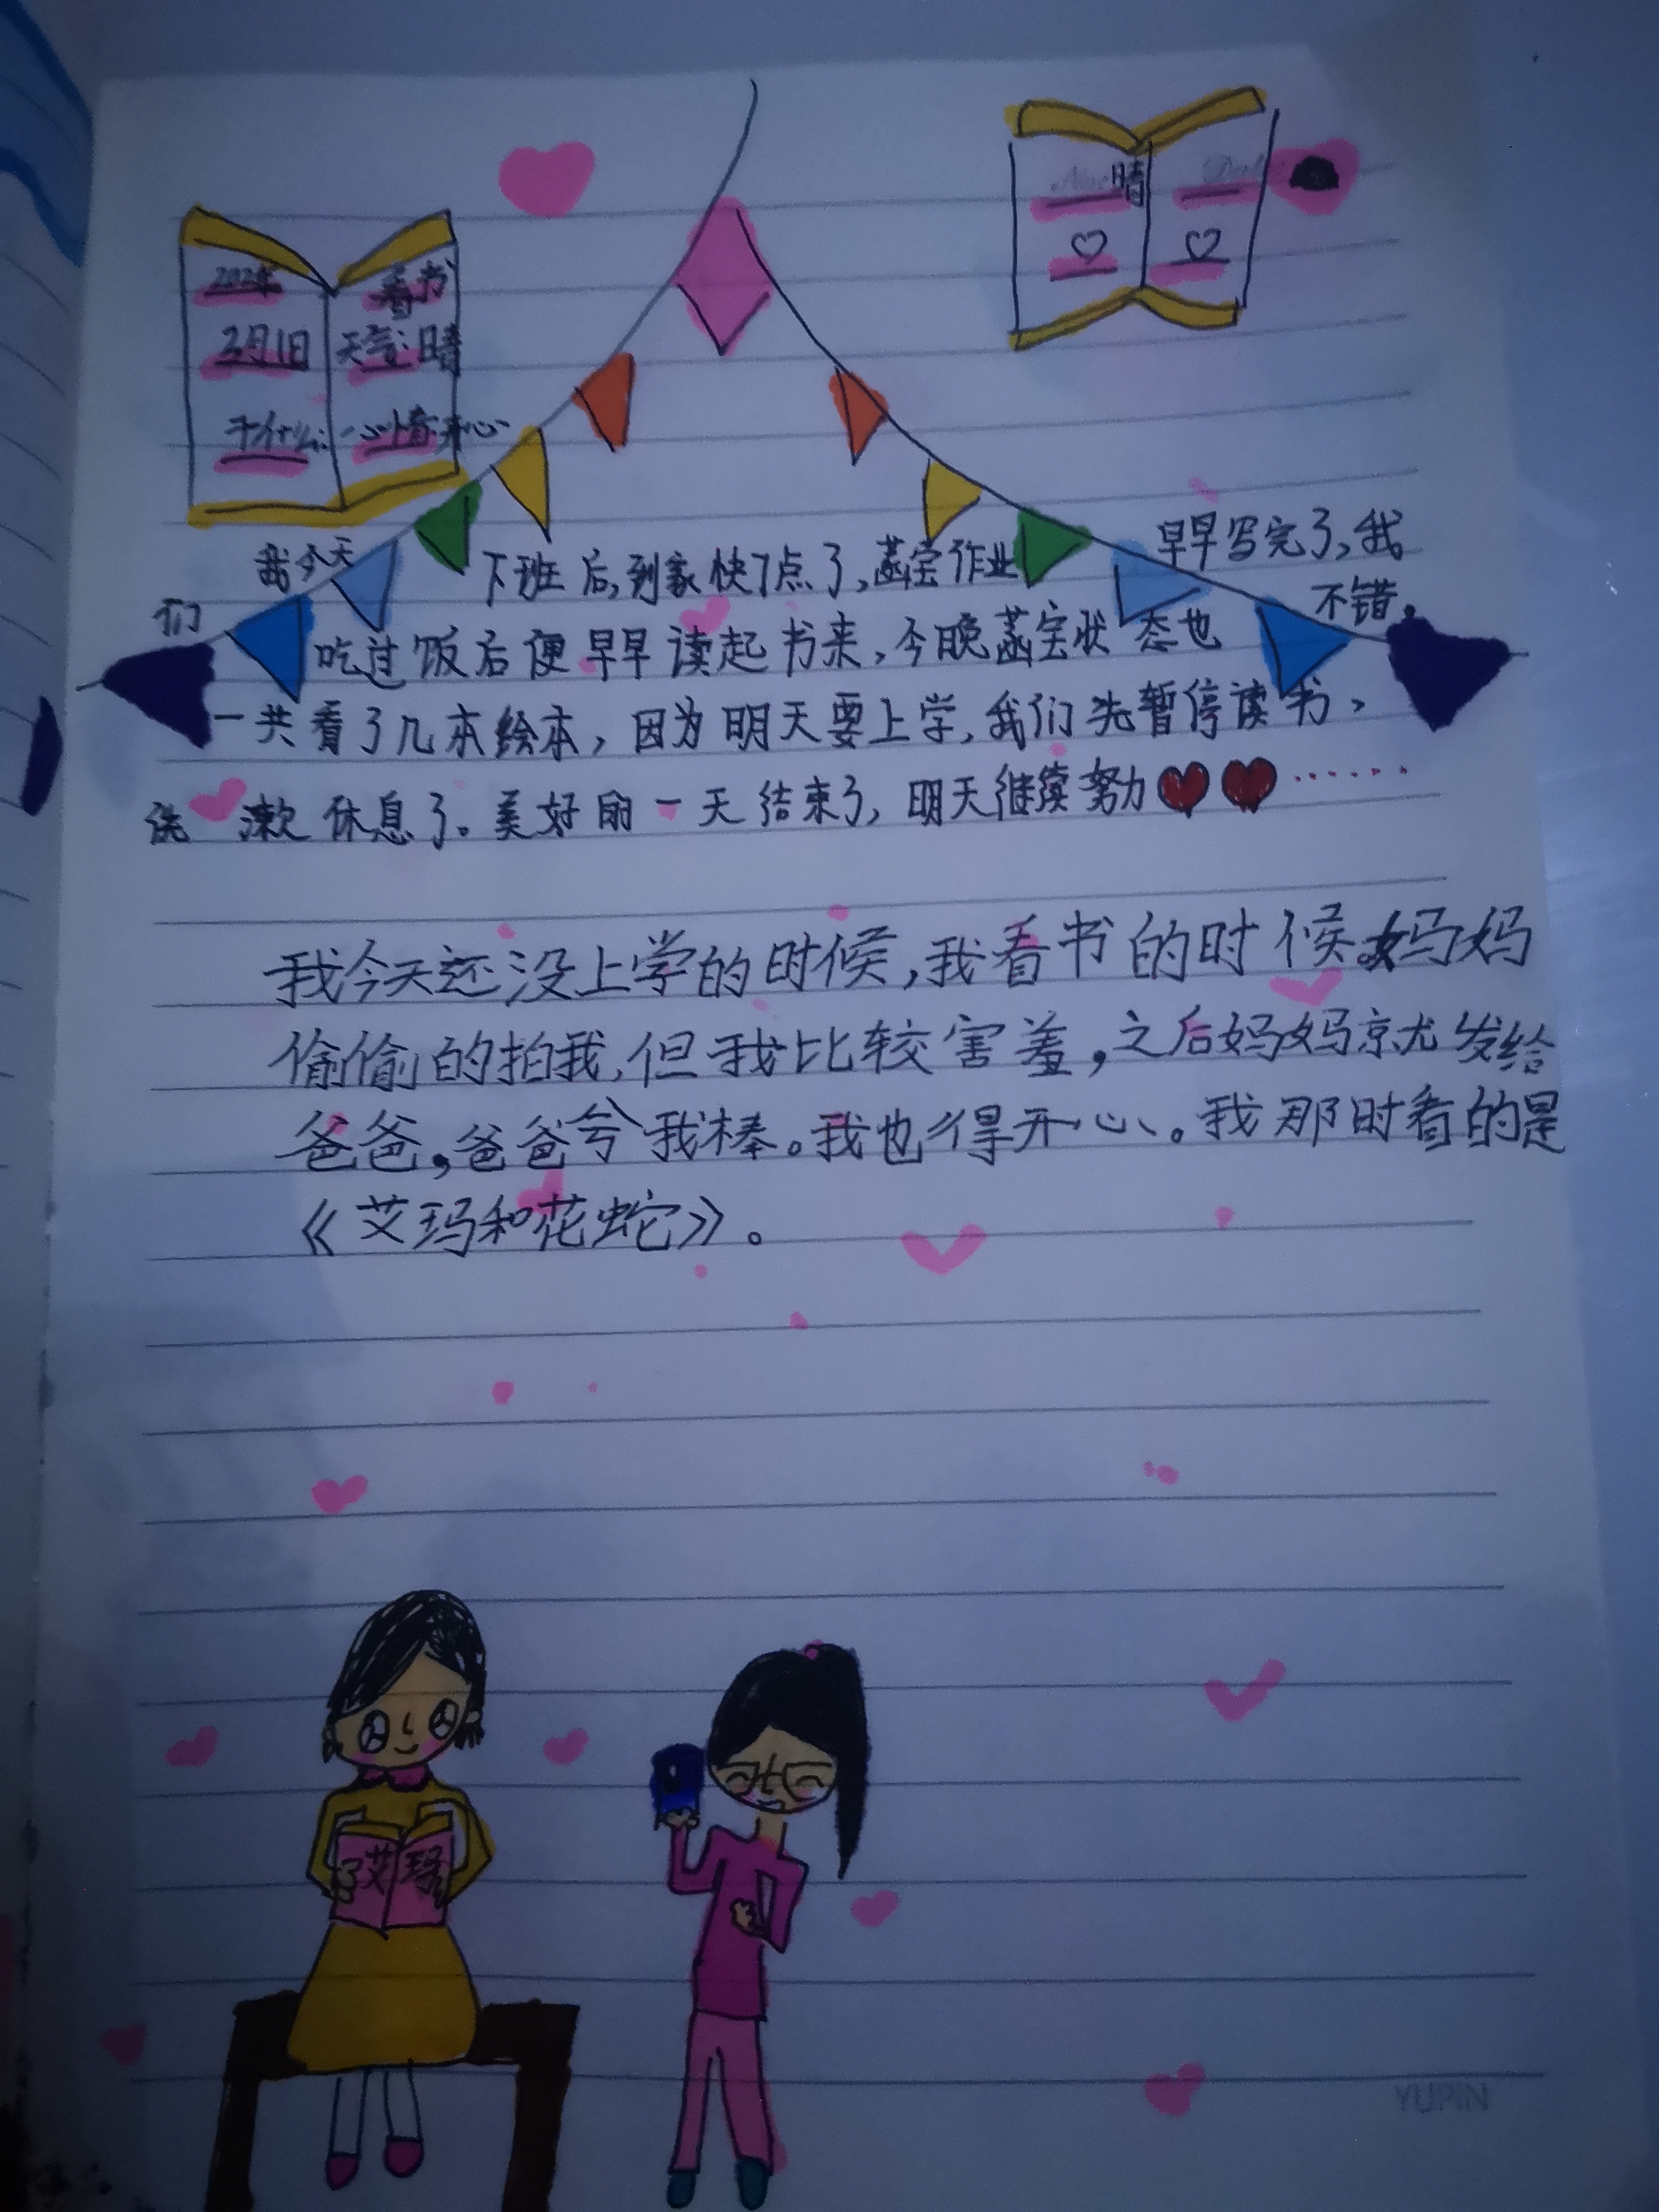 晴
看书
3月1日 天气:晴
干什么: 心情:开心
我今天 下班后,到家快7点了,菡宝作业 早早写完了,我
们 吃过饭后便早早读起书来,今晚菡宝状态也 不错,
一共看了几本绘本,因为明天要上学,我们先暂停读书,
洗漱休息了。美好的一天结束了,明天继续努力
我今天还没上学的时候,我看书的时候妈妈
偷偷的拍我,但我比较害羞,之后妈妈就发给
爸爸,爸爸夸我棒。我也得开心。我那时看的是
《艾玛和花蛇》。
艾玛
YUPIN